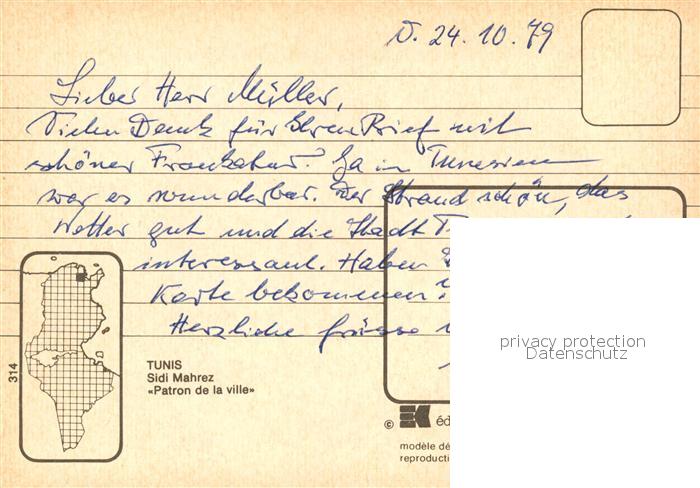 D. 24. 10. 79
Lieber Herr Müller,
Vielen Dank für Ihren Brief mit
schöner Frankatur. Ja in Tunesien
war es wunderbar. Der Strand schön, das
Wetter gut und die Stadt
interessant. Haben
Karte bekommen?
Herzliche Grüsse
314
TUNIS
Sidi Mahrez
«Patron de la ville»
© EK éd
modèle dé
reproducti
privacy protection
Datenschutz